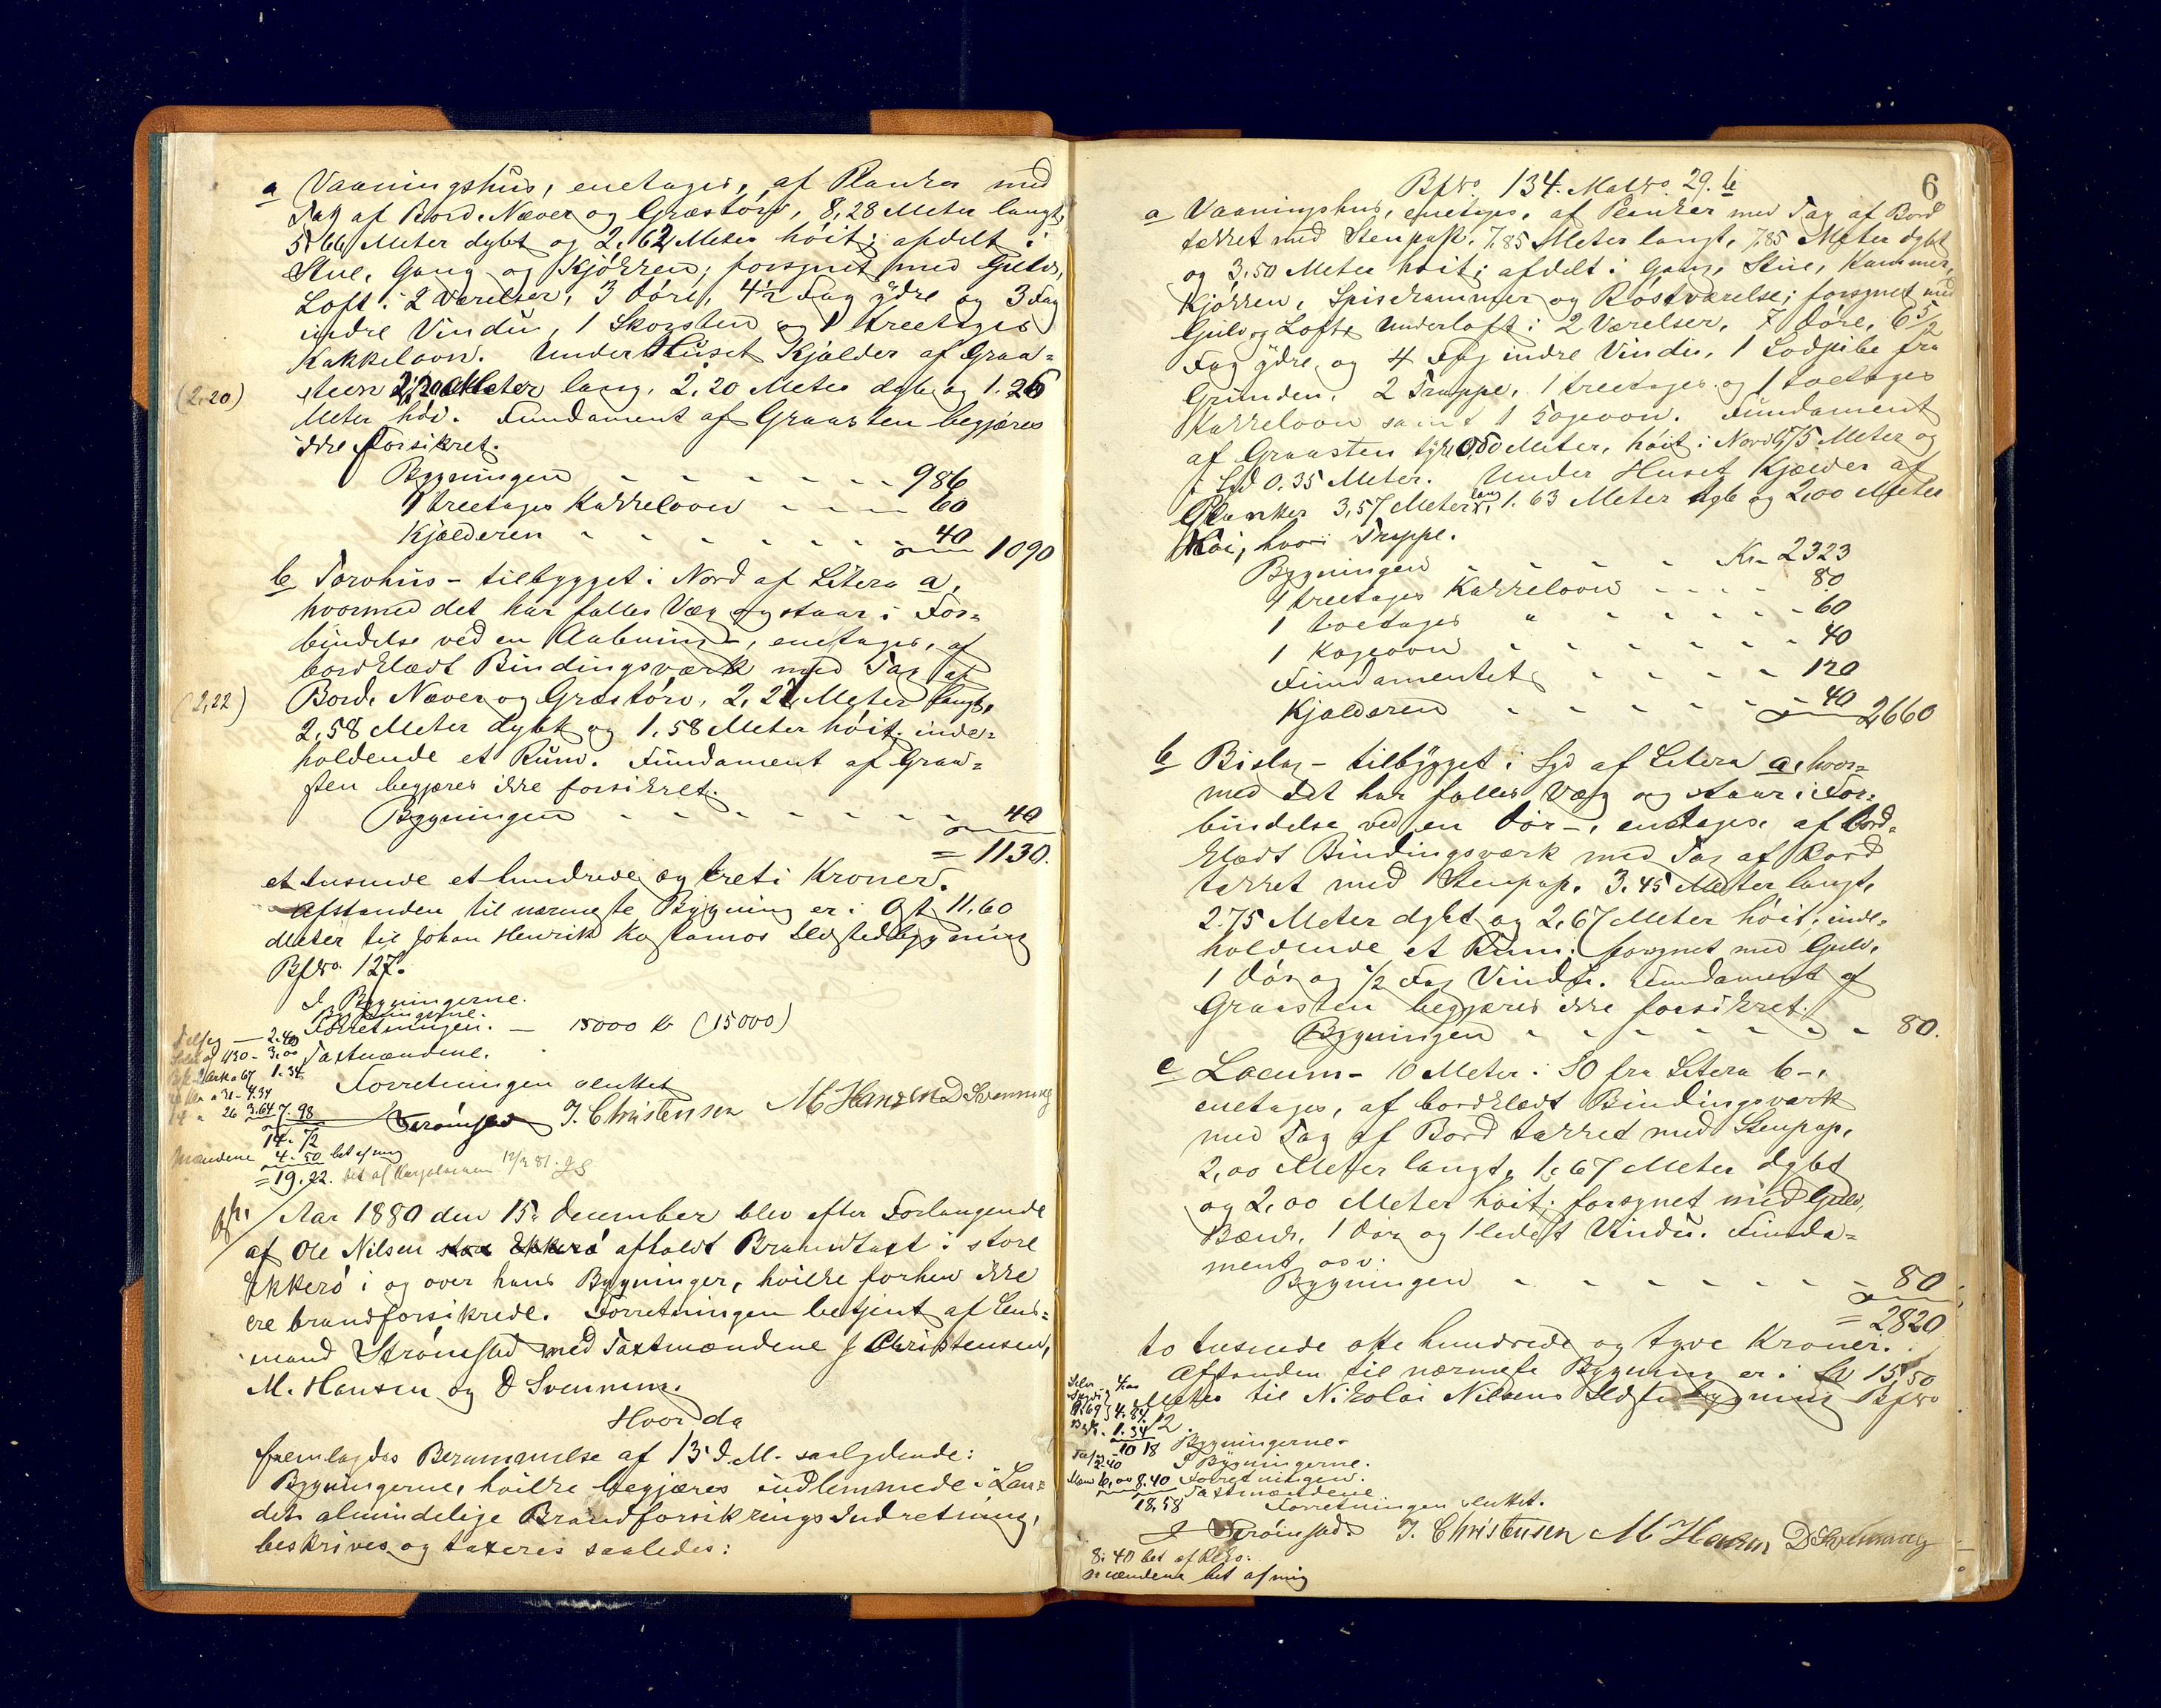 a Vaaningshus, enetages, af Planker med
Tag af Bord, Næver og Græstørv, 8,28 Meter langt,
5,66 Meter dybt og 2,62 Meter høit; afdelt i
Stue, Gang og Kjøkken; forsynet med Gulv,
Loft i 2 Værelser, 3 Døre, 4½ Fag ydre og 3 Fag
indre Vindu, 1 Skorsten og 1 treetages
Kakkelovn. Under Huset Kjælder af Graa=
(2,20) steen 2,20 Meter lang, 2,20 Meter dyb og 1.26
Meter høi. Fundament af Graasten begjæres
ikke forsikret.
Bygningen - - - - - - 986
1 treetages Kakkelovn - - - - 60
Kjælderen - - - - - - 40
1090
b Torvhus - tilbygget i Nord af Litera a,
hvormed det har fælles Væg og staar i For=
bindelse ved en Aabning -, enetages, af
bordklædt Bindingsværk med Tag af
(2,22) Bord, Næver og Græstørv, 2,22 Meter langt,
2,58 Meter dybt og 1,58 Meter høit; inde=
holdende et Rum. Fundament af Graa=
sten begjæres ikke forsikret.
Bygningen - - - - - - - 40
= 1130.
et tusinde et hundrede og treti Kroner.
Afstanden til nærmeste Bygning er i Øst 11,60
Meter til Johan Henrik Kostamos Ildstedbygning
Bfno. 127.
I Bygningerne.
Bygningerne.
Forretningen. — 15000 Kr (15000)
Taxtmændene.
Forretningen sluttet
2.40
1130 - 3,00
1.34
26 3.64 7.98
14.72
Mændene 4.50 bet af mig
= 19.22. 12/2 81.
Strømstad J. Christensen M Hansen D Svenning
Aar 1880 den 15. December blev efter Forlangende
af Ole Nilsen store Ekkerø afholdt Brandtaxt i store
Ekkerø i og over hans Bygninger, hvilke forhen ikke
ere brandforsikrede. Forretningen betjent af Lens=
mand Strømstad med Taxtmændene J Christensen,
M. Hansen og D Svenning.
Hvorda
fremlagdes Berammelse af 13 d.M. saalydende:
Bygningerne, hvilke begjæres indlemmede i Lan=
dets almindelige Brandforsikrings Indretning,
beskrives og taxeres saaledes:
6
Bfno. 134. Matno. 29. b
a Vaaningshus, enetages, af Planker med Tag af Bord
tækket med Stenpap. 7,85 Meter langt, 7,85 Meter dybt
og 3,50 Meter høit; afdelt i Gang, Stue, Kammer,
Kjøkken, Spiskammer og Røstværelse; forsynet med
Gulv og Loft, Underloft i 2 Værelser, 7 Døre, 6 5/2
Fag ydre og 4 Fag indre Vindu, 1 Lodpibe fra
Grunden, 2 Trappe, 1 treetages og 1 toetages
Kakkelovn samt 1 Kogeovn. Fundament
af Graasten tykt Meter, høit i Nord 0,75 Meter og
i Syd 0.35 Meter. Under Huset Kjælder af
Planker 3,57 Meter lang, 1.63 Meter dyb og 2,00 Meter
høi, hvori Trappe.
Bygningen - - - - Kr 2323
1 treetages Kakkelovn - - - - 80
1 toetages " - - - - - 60
1 Kogeovn - - - - - - 40
Fundamentet - - - - - 120
Kjælderen - - - - - - 40
2660
b Bislag - tilbygget i Syd af Litera a, hvor=
med det har fælles Væg og staar i For=
bindelse ved en Dør -, enetages, af bord=
klædt Bindingsværk med Tag af Bord
tækket med Stenpap, 3.45 Meter langt,
2.75 Meter dybt og 2,67 Meter høit; inde=
holdende et Rum; forsynet med Gulv,
1 Dør og ½ Fag Vindu. Fundament af
Graasten begjæres ikke forsikret.
Bygningen - - - - - - - 80.
c Locum - 10 Meter i SO fra Litera b -,
enetages, af bordklædt Bindingsværk
med Tag af Bord tækket med Stenpap,
2,00 Meter langt, 1,67 Meter dybt
og 2,00 Meter høit; forsynet med Gulv,
Bænk, 1 Dør og 1 ledet Vindu. Funda=
ment osv.
Bygningen - - - - - - - 80
= 2820
to tusinde otte hundrede og tyve Kroner.
Afstanden til nærmeste Bygning er i 15,50
Meter til Nikolai Nilsens Ildstedbygning Bfno
12.
Bygningerne.
I Bygningerne.
Forretningen.
Taxtmændene
Forretningen sluttet.
4,00
1.34
10 18
2.40
6,00 8.40
18,58
J Strømstad. J. Christensen M Hansen D Svenning
8.40 bet af
Mændene bet af mig